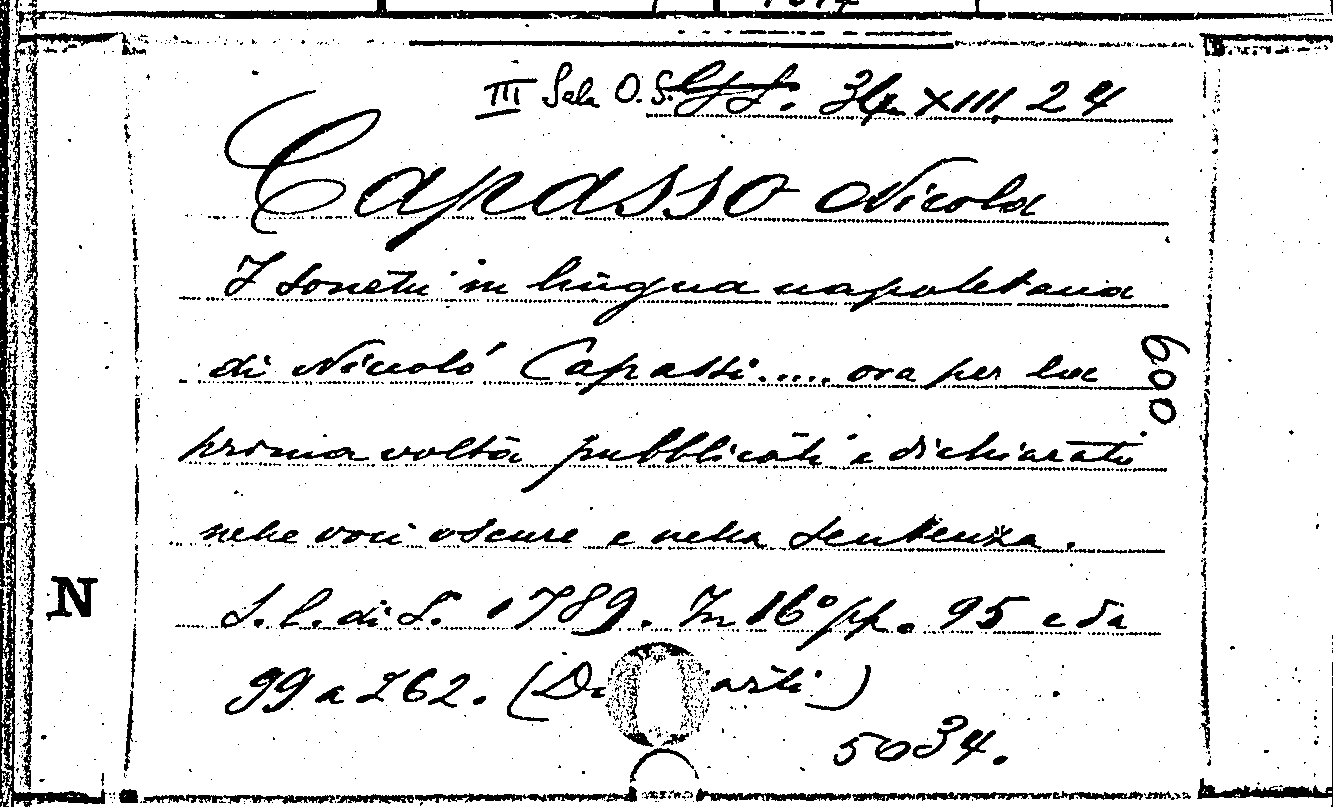 III Sala O.S. XIII, 24
Capasso Nicola
I sonetti in lingua napoletana
di Niccoló Capassi..... ora per la
prima volta pubblicati e dichiarati
nelle voci oscure e nella sentenza.
S. l. di S. 1789. In 16° pp. 95 e da
99 a 262. (Due parti)
5034.
600
N